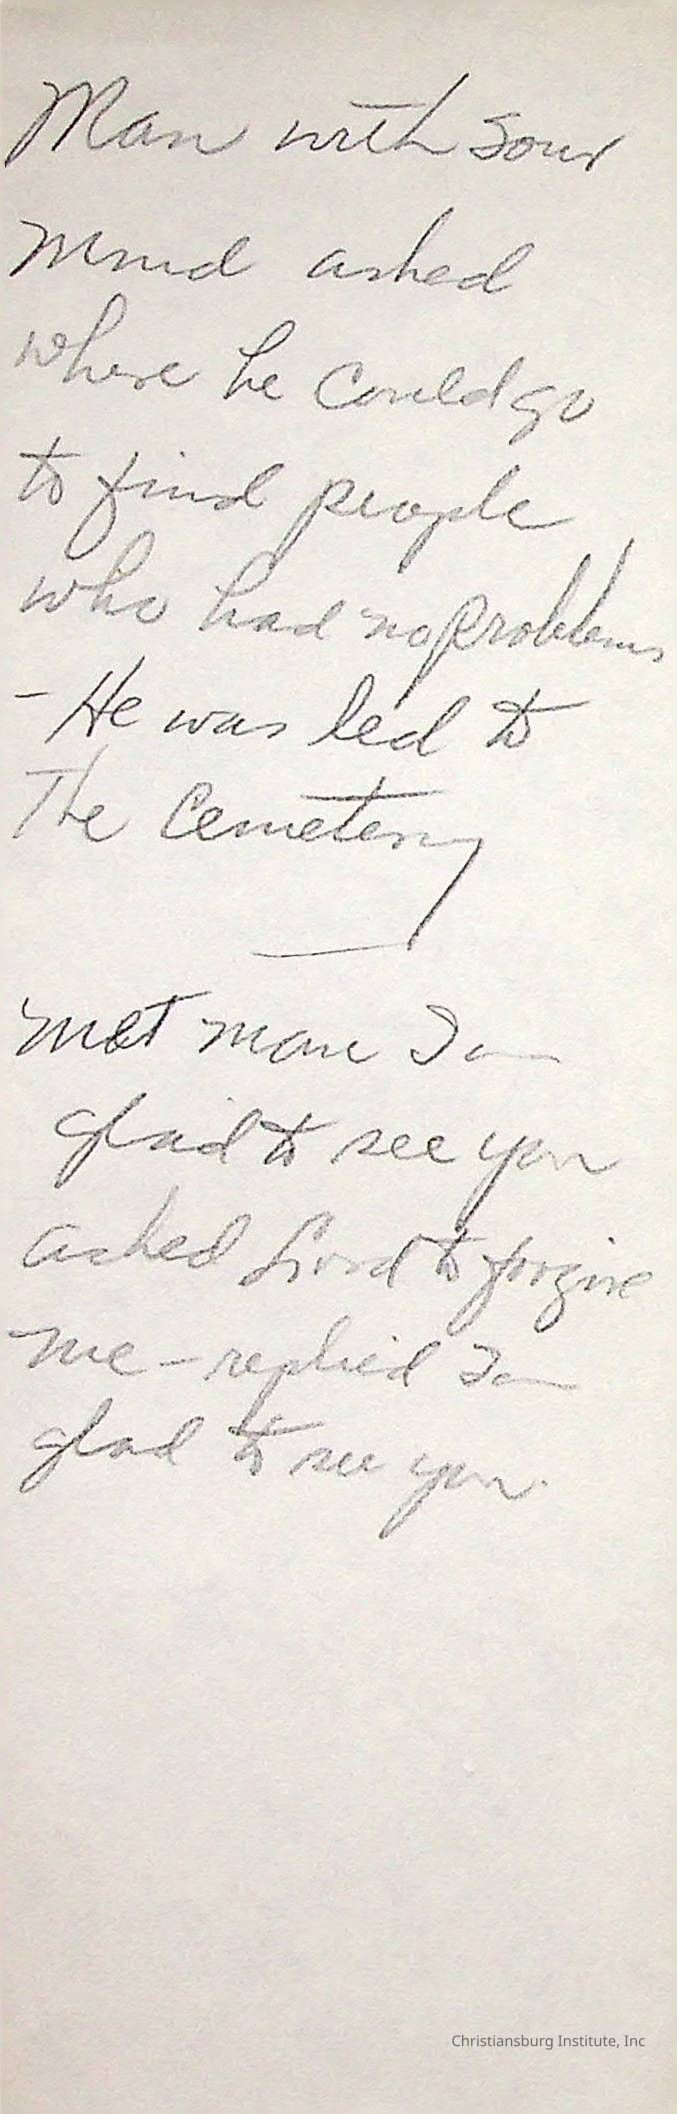 Man with sour
mind asked
where he could go
to find people
who had no problems
- He was led to
The Cemetery
met man I am
glad to see you
asked Lord to forgive
me - replied I am
glad to see you.
Christiansburg Institute, Inc